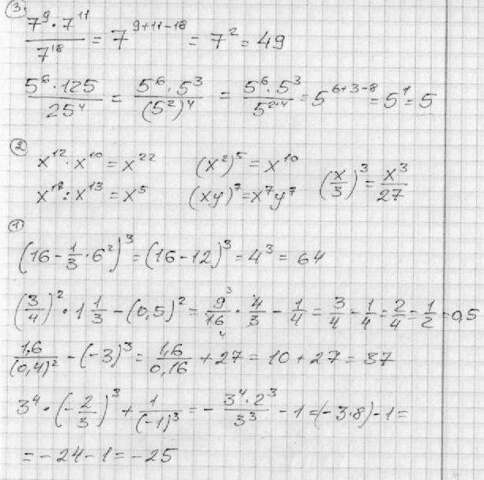 ③
7⁹·7¹¹/7¹⁸ = 7⁹⁺¹¹⁻¹⁸ = 7² = 49
5⁶·125/25⁴ = 5⁶·5³/(5²)⁴ = 5⁶·5³/5²·⁴ = 5⁶⁺³⁻⁸ = 5¹ = 5
②
x¹²·x¹⁰ = x²² (x²)⁵ = x¹⁰ (x/3)³ = x³/27
x¹⁸:x¹³ = x⁵ (xy)⁷ = x⁷y⁷
①
(16 - 1/3·6²)³ = (16 - 12)³ = 4³ = 64
(3/4)²·1 1/3 - (0,5)² = 9/16·4/3 - 1/4 = 3/4 - 1/4 = 2/4 = 1/2 = 0,5
1,6/(0,4)² - (-3)³ = 1,6/0,16 + 27 = 10 + 27 = 37
3⁴·(-2/3)³ + 1/(-1)³ = - 3⁴·2³/3³ - 1 = (-3·8) - 1 =
= -24 - 1 = -25